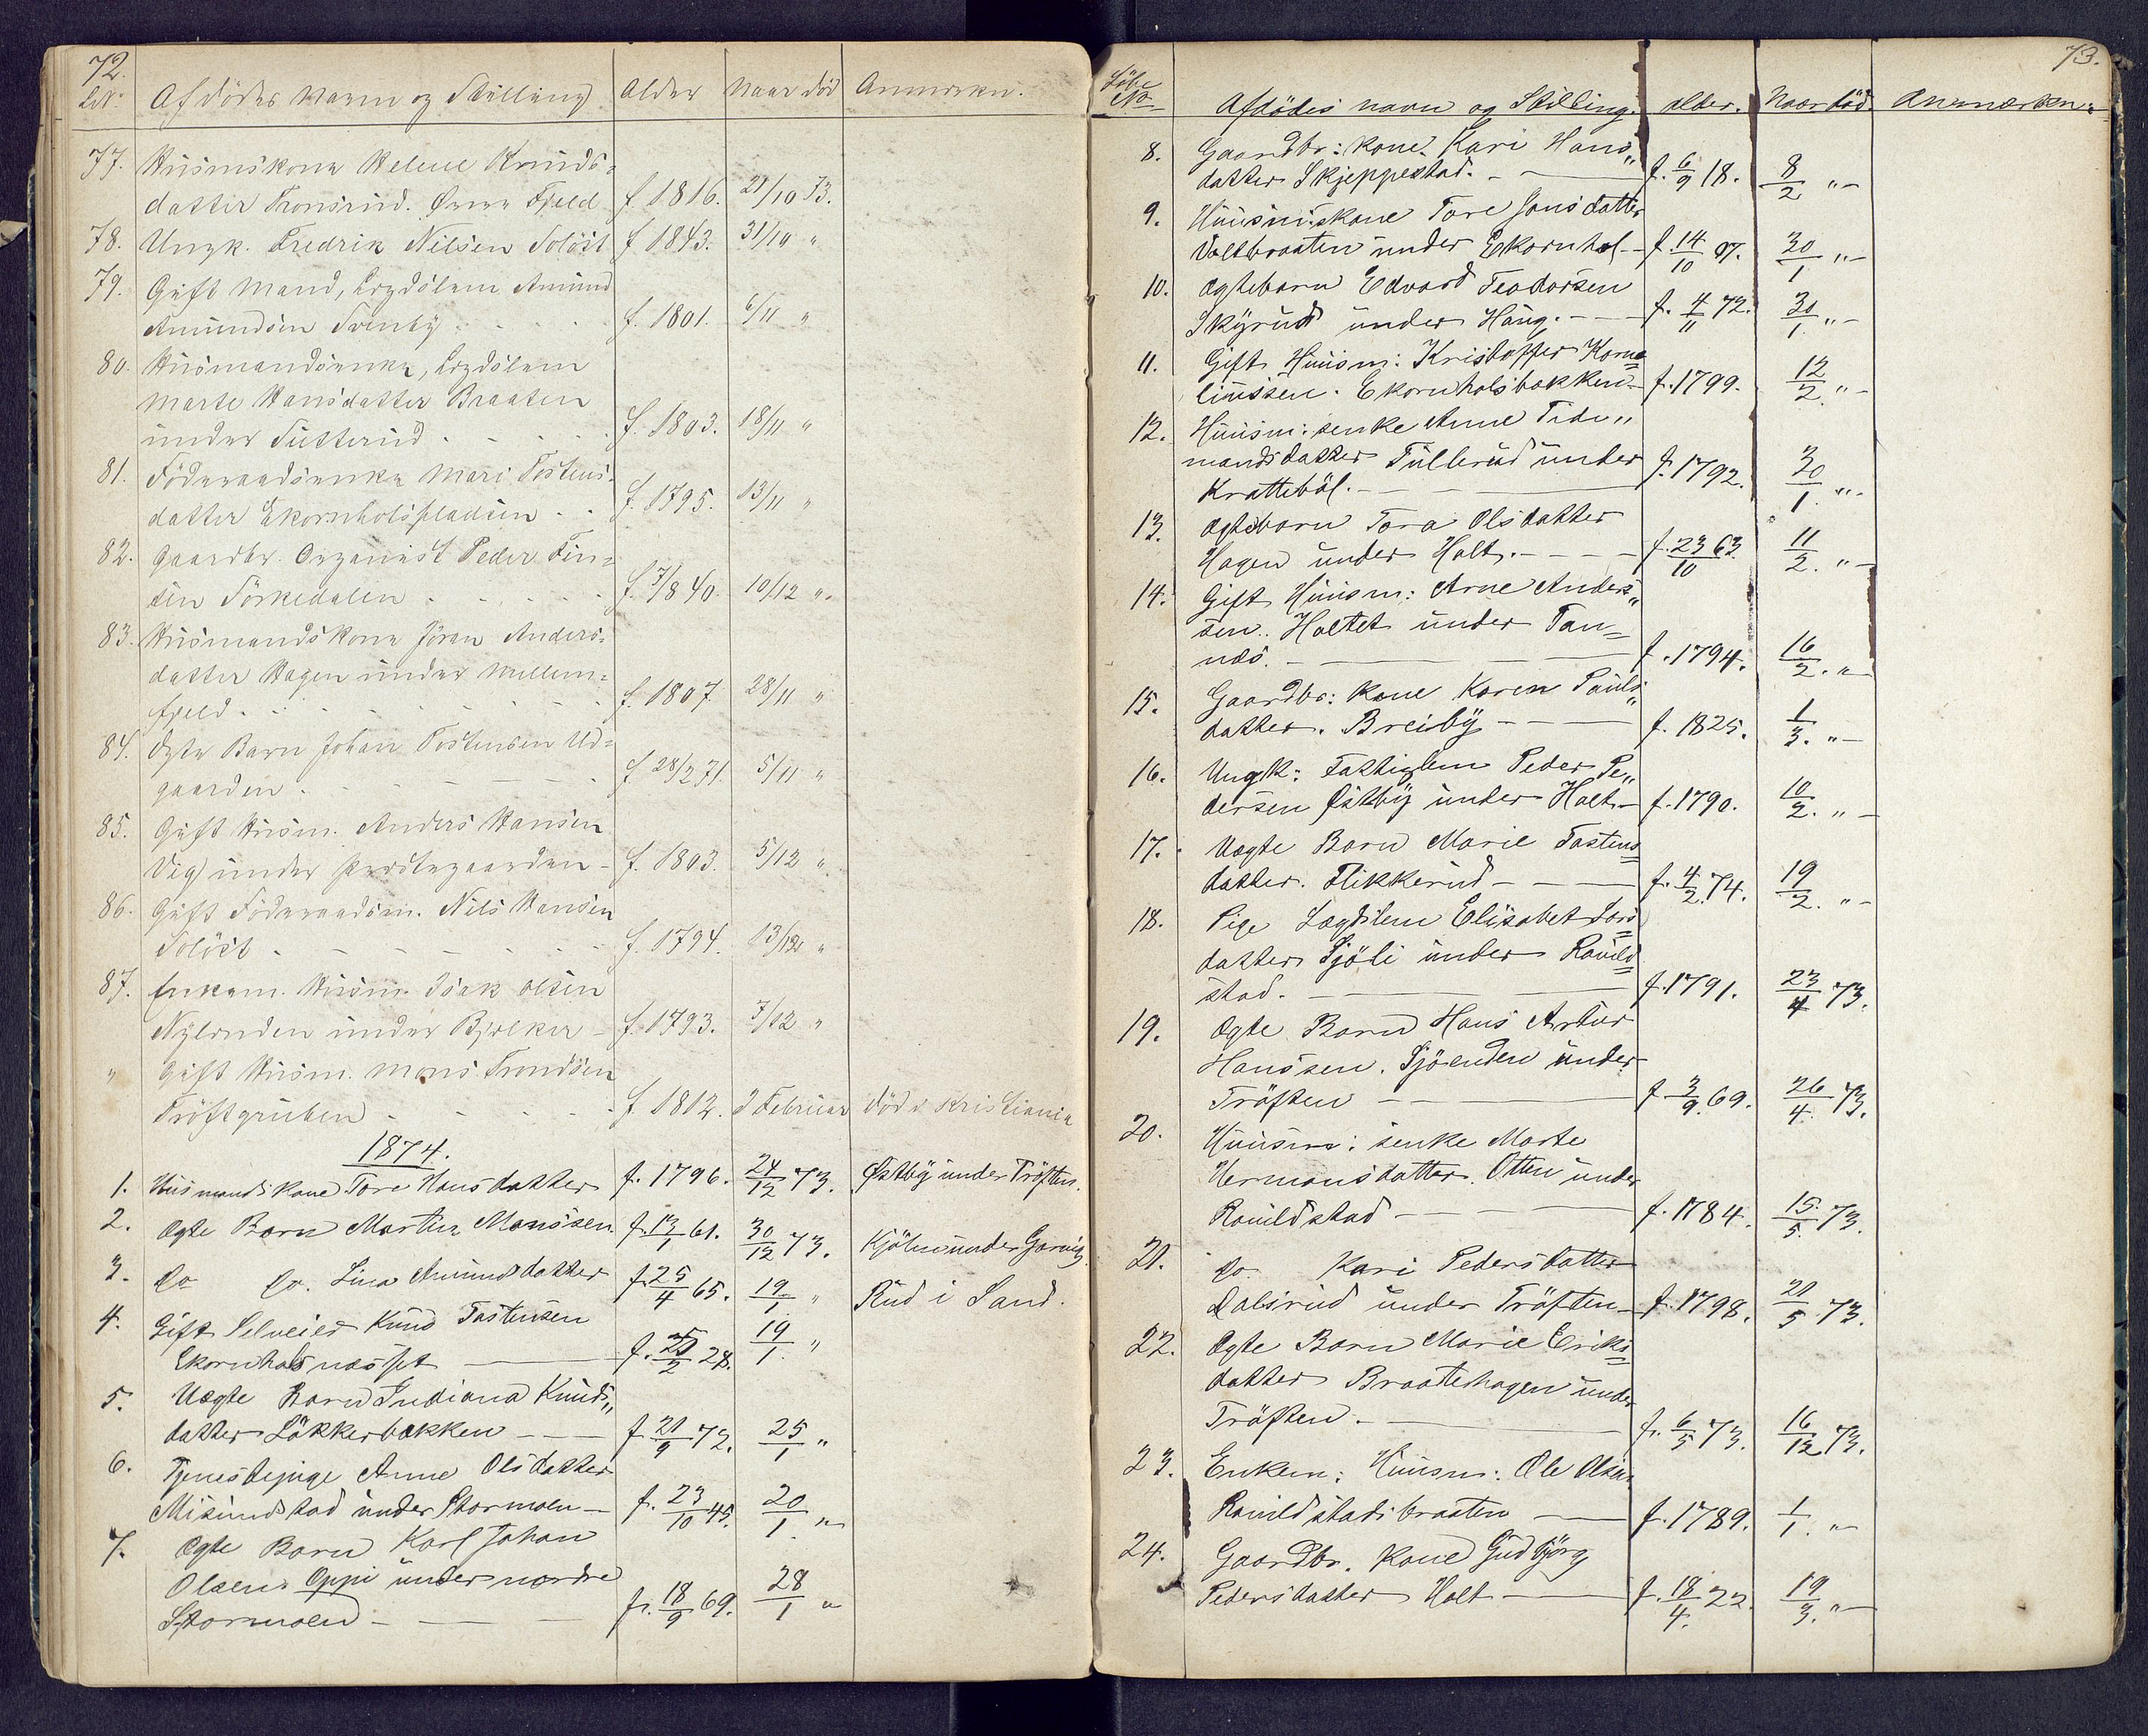 72.
L.N. Afdödes Navn og Stilling Alder Naar död Anmærkn.
77. Husmskone Helene Knuds-
datter Tronsrud. Øvre Fjeld f. 1816. 21/10 73.
78. Ungk. Fredrik Nilsen Solöst f. 1843. 31/10 "
79. Gift Mand, Lægdslem Amund
Amundsen f. 1801. 6/11 "
80. Husmandsenke, Lægdslem
Marte Hansdatter Braaten
under f. 1803. 18/11 "
81. Föderaadsenke Mari Tostens-
datter Ekornholspladsen f. 1795. 13/11 "
82. Gaardbr. Organist Peder Fin-
sen Sörkedalen f. 7/8 40. 10/12 "
83. Husmandskone Jöran Anders-
datter Hagen under Mellem-
fjeld f. 1807. 28/11 "
84. Ægte Barn Johan Tostensen Ud-
gaarden f. 28/2 71. 5/11 "
85. Gift Husm. Anders Hansen
Vig under Præstegaarden f. 1803. 5/12 "
86. Gift Föderaadsm. Nils Hansen
Solöst f. 1794. 13/12 "
87. Enkem. Husm. Isak Olsen
Nylenden under Bjelker f. 1793. 7/12 "
" Gift Husm. Mons Trondsen
Tröftgruben f. 1812. 2 Februar död i Kristiania
1874.
1. Husmandskone Tore Hansdatter f. 1796. 24/12 73. Østby under Tröften.
2. Ægte Barn Martin Monssen f. 13/1 61. 30/12 73. Kjölen under
3. do do. Lina Amundsdatter f. 25/4 65. 19/1 " Rud i Sand.
4. Gift Selveier Knud Tostensen
Ekornholsnæsset f. 2 28. 19/1 "
5. Uægte Barn Indiana Knuds,,
datter Lökkerbakken f. 21/9 72. 25/1 "
6. Tjenestepige Anne Olsdatter
Misundstad under Stormoen f. 23/10 45. 20/1 "
7. Ægte Barn Karl Johan
Olsen. Oppi under nordre
Stormoen f. 18/9 69. 28/1 "
73.
Löbe N. Afdödes navn og Stilling. alder. Naar död. Anmærken:
8. Gaardbr: kone. Kari Hans,,
datter Skjeppestad. f. 6/9 18. 8/2 "
9. Huusm:skone Tore Jonsdatter
Valtbraaten under Ekornhol f. 14/10 07. 30/1 "
10. Ægtebarn Edvard Teodorsen
Skyrud under Haug. f. 4/11 72. 30/1 "
11. Gift Huusm: Kristoffer Korne=
liussen. Ekornholsbakken f. 1799. 12/2 "
12. Huusm: enke Anne Tide,,
mandsdatter Tullerud under
Kratteböl. f. 1792. 30/1 "
13. Ægtebarn Tora Olsdatter
Hagen under Holt. f. 23/10 63 11/2 "
14. Gift Huusm: Arne Anders,,
sen. Holtet under Tan=
næs. f. 1794. 16/2 "
15. Gaardbr: kone Karen Pauls,,
datter. Breiby f. 1825. 1/3 "
16. Ungk: Fattiglem Peder Pe,,
dersen Østby under Holt f. 1790. 10/2 "
17. Uægte Barn Marie Tostens=
datter. Flikkerud f. 4/2 74. 19/2 "
18. Pige Lægdslem Elisabet Lars=
datter Sjöli under Rauild=
stad. f. 1791. 23/4 73.
19. Ægte Barn Hans Artur
Hanssen. Sjöenden under
Tröften f. 3/9 69. 26/4 73.
20. Huusm: enke Marte
Hermansdatter. Otten under
Rauildstad f. 1784. 15/5 73.
21. do. Kari Pedersdatter
Dalsrud under Tröften f. 1798. 21/5 73.
22. Ægte Barn Marie Eriks=
datter Braatehagen under
Tröften. f. 6/5 73. 16/12 73.
23. Enkem: Huusm: Ole Olsen
Rauildstadsbraaten f. 1789. 1/1 "
24. Gaardbr. kone Gudbjörg
Pedersdatter Holt f. 18/4 22. 19/3 "